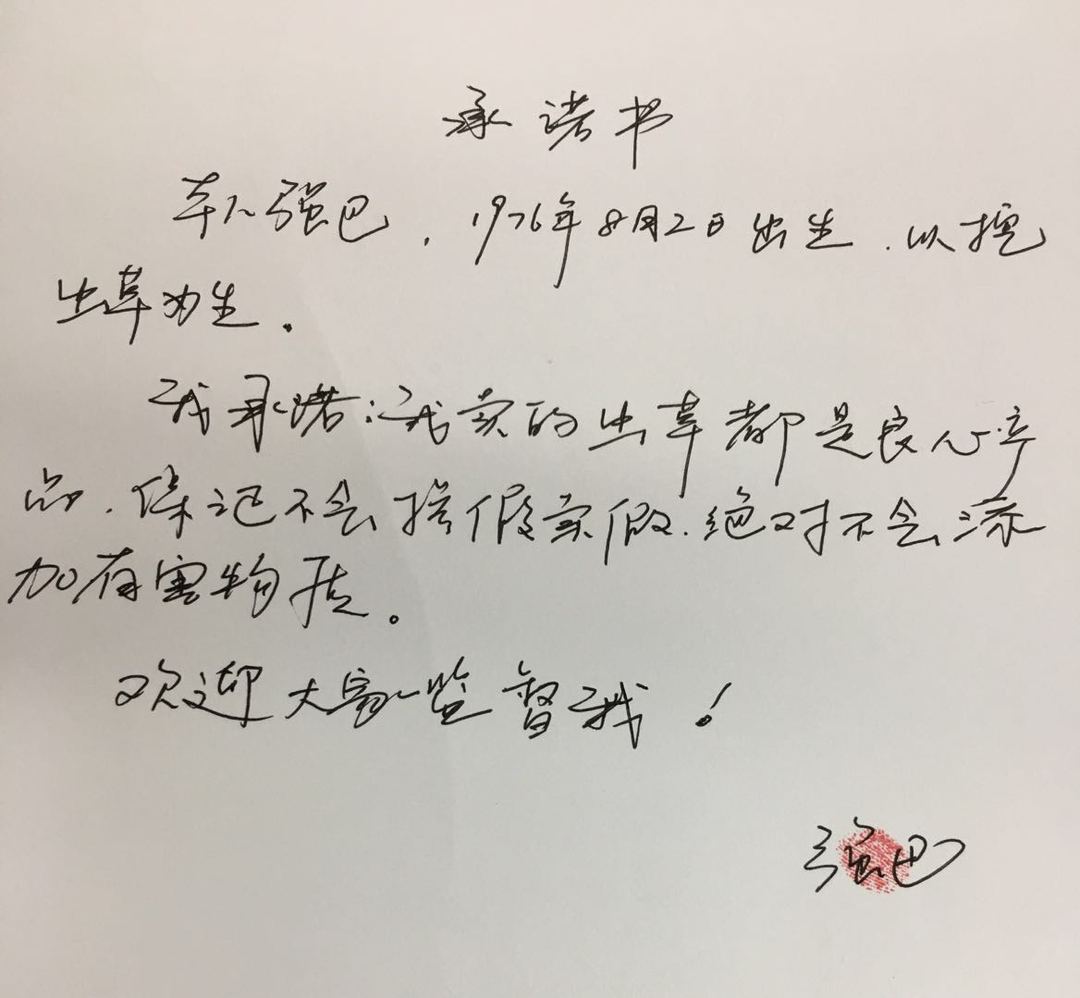 承诺书
本人强巴，1976年8月2日出生，以挖
虫草为生。
我承诺：我卖的虫草都是良心产
品，保证不会掺假卖假，绝对不会添
加有害物质。
欢迎大家监督我！
强巴